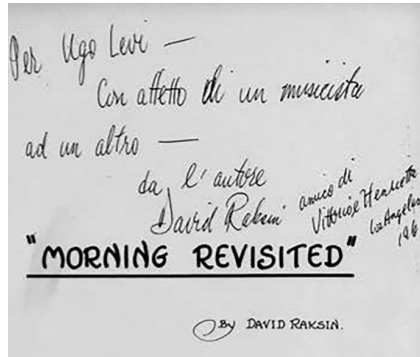 Per Ugo Levi —
Con affetto di un musicista
ad un altro —
da l'autore
David Raksin
amico di
Vittorio e Henrietta
Los Angeles
196
"MORNING REVISITED"
BY DAVID RAKSIN.